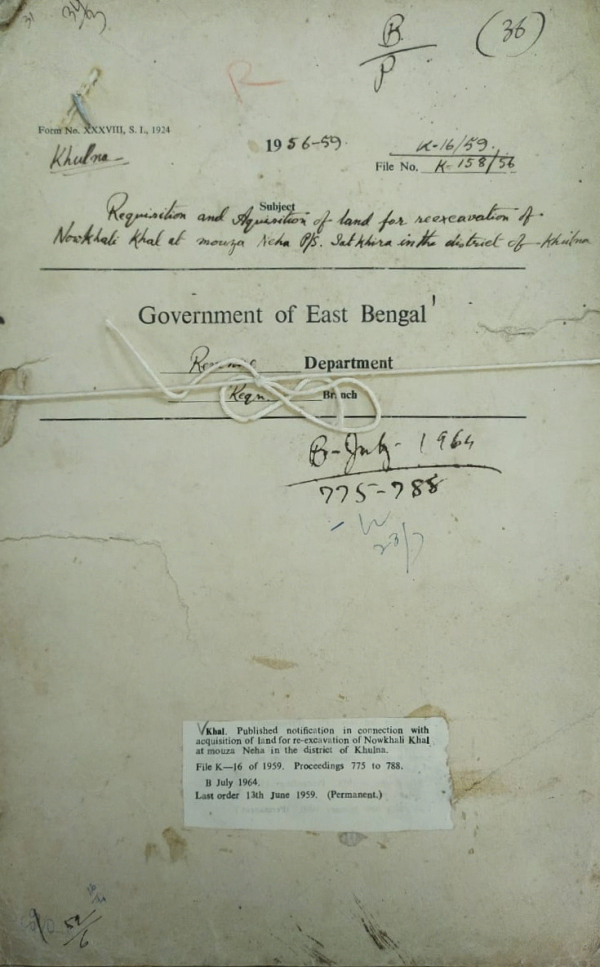 31
B
P
(36)
R
Form No. XXXVIII, S. I., 1924
Khulna
1956-59.
K-16/59.
File No. K-158/56
Subject
Requisition and Aquisition of land for reexcavation of
Nowkhali Khal at mouza Neha P/S. Satkhira in the district of Khulna
Government of East Bengal
Department
Reqn. Branch
B-July-1964
775-788
23/7
Khal. Published notification in connection with
acquisition of land for re-excavation of Nowkhali Khal
at mouza Neha in the district of Khulna.
File K—16 of 1959. Proceedings 775 to 788.
B July 1964.
Last order 13th June 1959. (Permanent.)